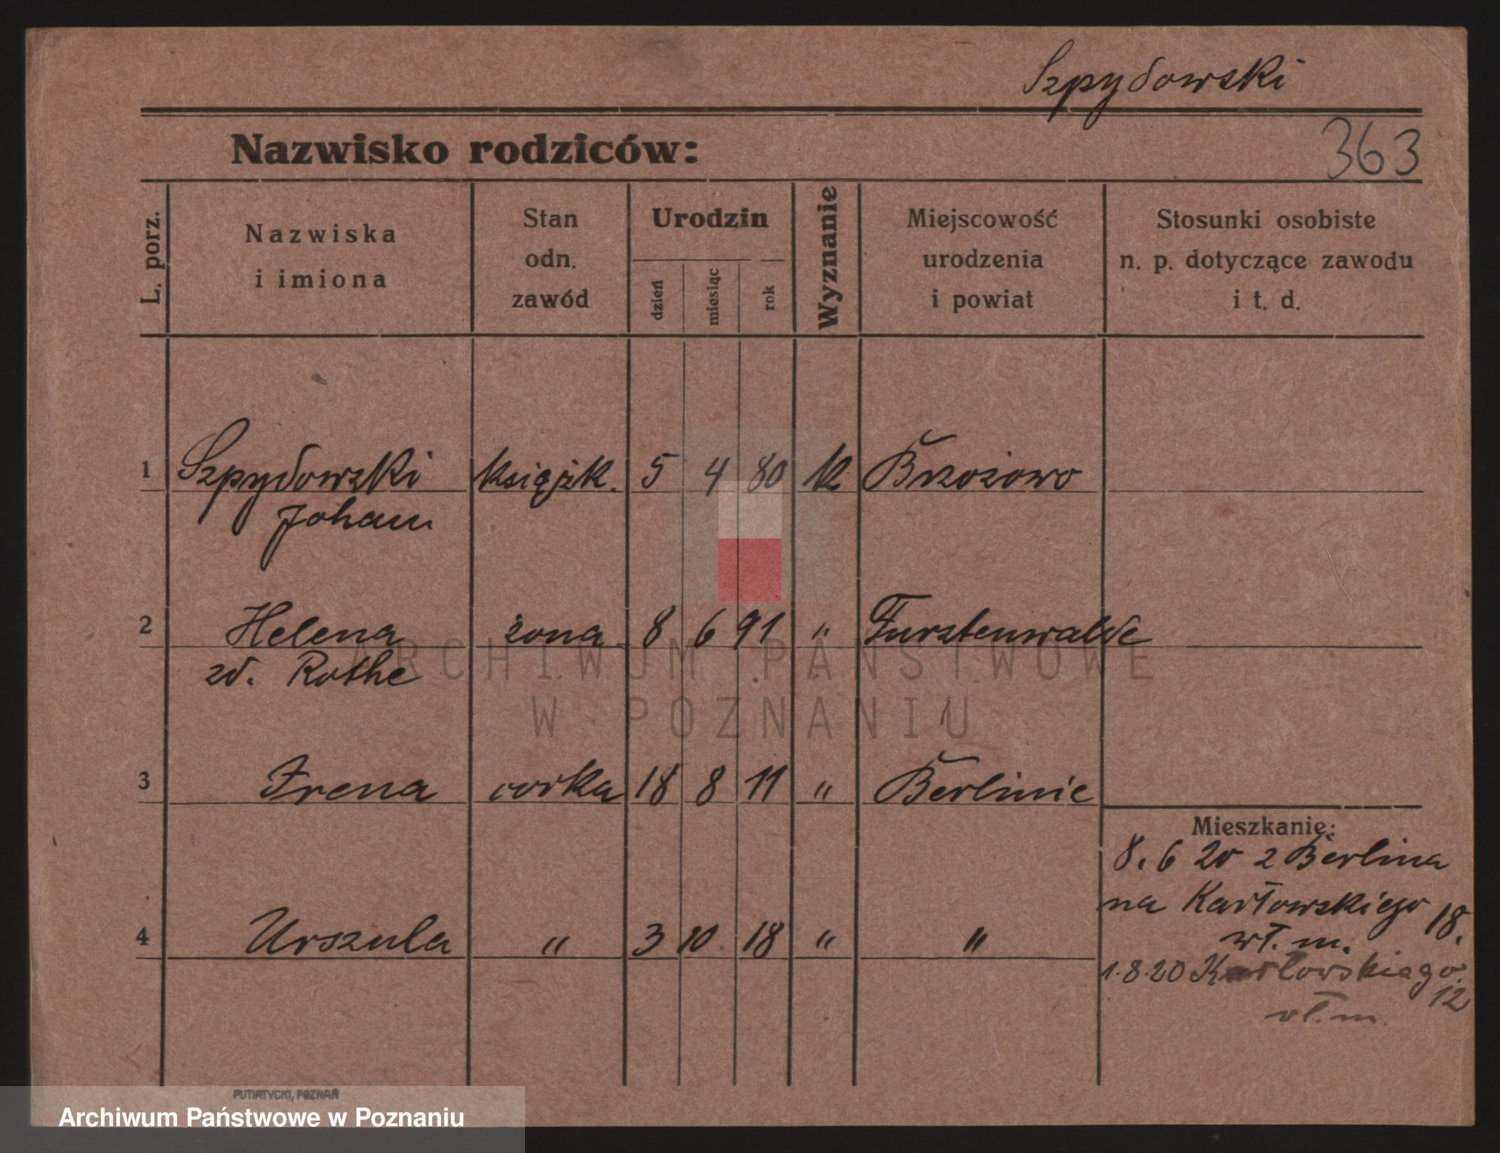 Szpydowski
Nazwisko rodziców:
363
L. porz.
Nazwiska
i imiona
Stan
odn.
zawód
Urodzin
dzień
miesiąc
rok
Wyznanie
Miejscowość
urodzenia
i powiat
Stosunki osobiste
n. p. dotyczące zawodu
i t. d.
1 Szpydowski książk. 5 4 80 K Brzozowo
Johann
2 Helena żona 8 6 91 " Furstenwalde
zd. Rothe
3 Irena corka 18 8 11 " Berlinie
Mieszkanie:
8. 6 20 z Berlina
na Karłowskiego 18.
wł. m.
4 Urszula " 3 10 18 " "
1.8.20 Karłowskiego 12
wł. m.
ARCHIWUM PAŃSTWOWE
W POZNANIU
PUTIATYCKI, POZNAŃ
Archiwum Państwowe w Poznaniu